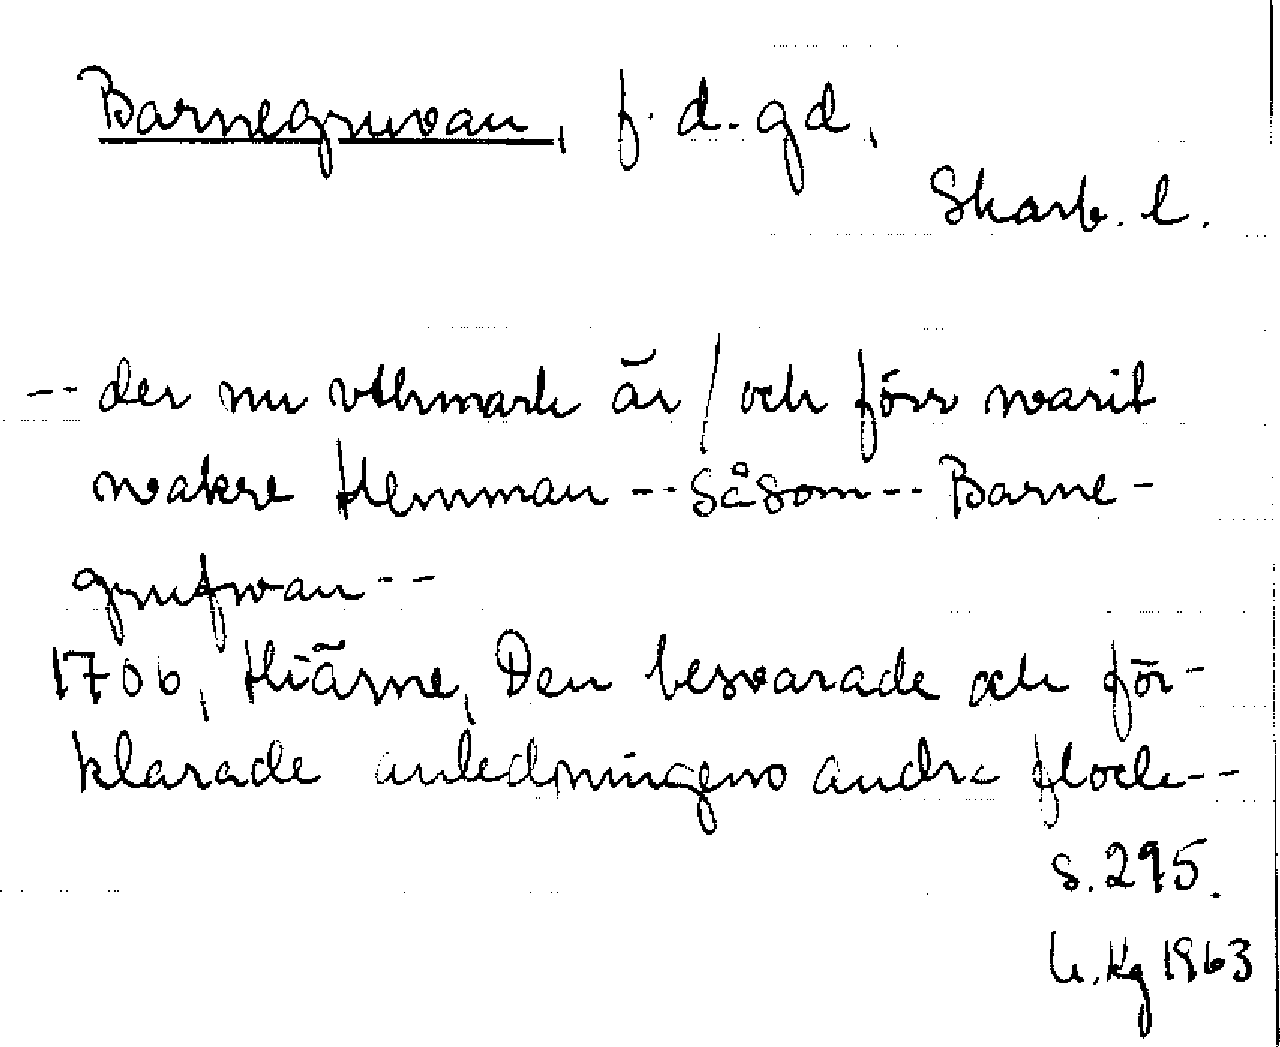 Barnegruvan, f. d. gd,
Skarb. l.
-- der nu vthmark är / och förr warit
wakre Hemman -- såsom -- Barne-
grufwan --
1706, Hiärne, Den besvarade och för-
klarade anledningens andra flock --
s. 295.
U. Kg 1963